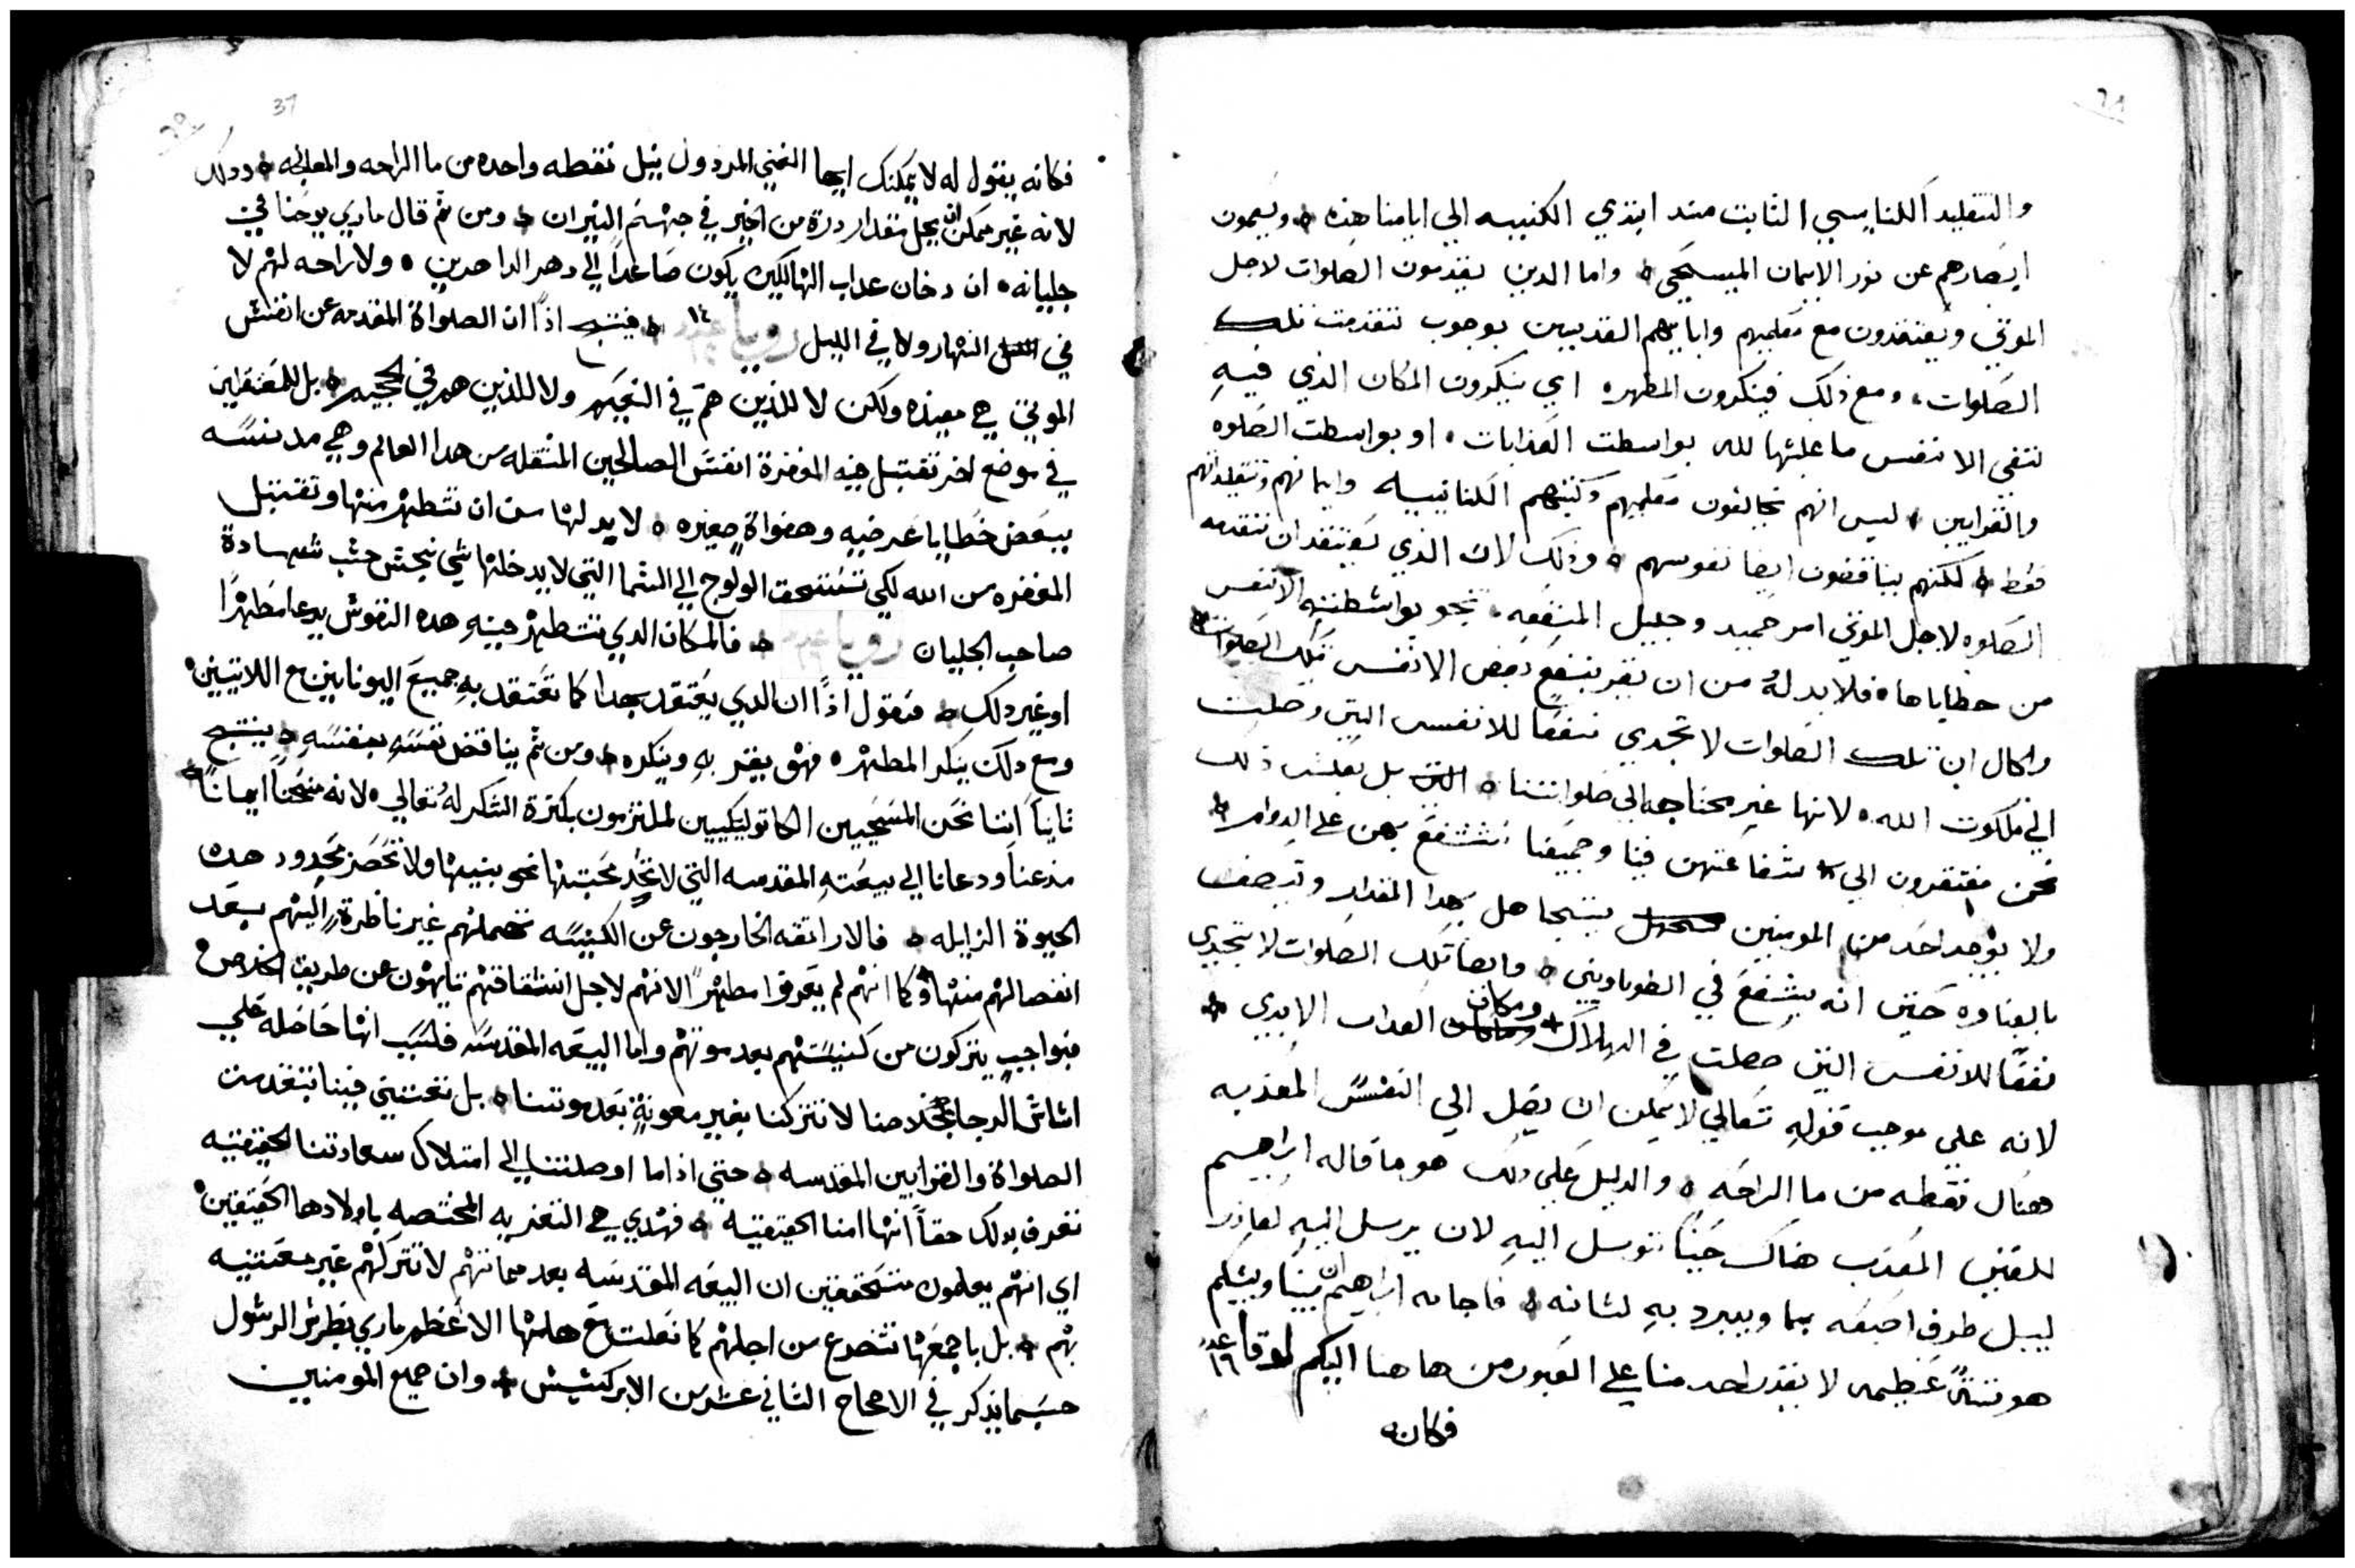 والتقليد الكنايسي الثابت منذ ابتدي الكنيسه الي ايامنا هذه ه ويعمون
ابصارهم عن نور الايمان المسيحي ه واما الدين يقدمون الصلوات لاجل
الموتي ويعتقدون مع معلميهم واباييهم القديسين بوجوب تقدمت تلك
الصلوات، ومع ذلك فينكرون المطهره اي ينكرون المكان الذي فيه
تتفي الانفس ما عليها لله بواسطت العذابات، او بواسطت الصلوه
والقرابين، ليس انهم يخالفون معلميهم وكتبهم الكنايسيه وايمانهم وتقليداتهم
فقط ه لكنهم يناقضون ايضا نفوسهم ه وذلك لان الذي يعتقد ان تقدمه
الصلوه لاجل الموتي امر حميد وجليل المنفعه، تنجو بواسطته الانفس
من خطاياها ه فلا بد له من ان يقر بنفع بعض الانفس بتلك الصلوات
والحال ان تلك الصلوات لا تجدي نفعا للانفس التي وصلت
الي ملكوت الله ه لانها غير محتاجه الي صلواتنا ه بل بعكس ذلك
نحن مفتقرون الي شفاعتهن فينا وجميعنا نستشفع بهن علي الدوام ه
ولا يوجد احد من المومنين يتجاهل بهدا المقدار ويتصف
بالغباوه حتي انه يشفع في الطوباويين ه وايضا تلك الصلوات لا تجدي
نفعا للانفس التي حصلت في الهلاك ومكان العداب الابدي ه
لانه علي موجب قوله تعالي لا يمكن ان يصل الي النفس المعذبه
هناك نقطه من ما الراحه ه والدليل علي ذلك هو ما قاله ابراهيم
للغني المعذب هناك حينا توسل اليه لان يرسل اليه لعازر
ليبل طرف اصبعه بما ويبرد به لسانه ه فاجابه ابراهيم ان بيننا وبينكم
هوتة عظيمه لا يقدر احد منا علي العبور من هاهنا اليكم لوقا عدد ١٦
فكانه
37
فكانه يقول له لا يمكنك ايها الغني المردول نيل نقطه واحده من ما الراحه والمعانه ه ودلك
لانه غير ممكن ان يحل مقدار درة من الخير في جهنم النيران ه ومن ثم قال ماري يوحنا في
جليانه ه ان دخان عداب الهالكين يكون صاعدا الي دهر الداهرين ه ولا راحه لهم لا
في النهار ولا في الليل رويا ١٤ فينتج اذا ان الصلواة المقدمه عن انفس
الموتي هي مفيده ولكن لا للذين هم في النعيم ولا للذين هم في الجحيم ه بل للمعتقلين
في موضع اخر تقتبل فيه المغفرة انفس الصالحين المنتقله من هدا العالم وهي مدنسه
ببعض خطايا عرضيه وهفواة صغيره ه لا بد لها من ان تتطهر منها وتقتبل
المغفره من الله لكي تستحق الولوج الي السما التي لا يدخلها شي نجس حسب شهادة
صاحب الجليان رويا ه فالمكان الدي تتطهر فيه هده النفوس يدعا مطهرا
او غير دلك ه فنقول اذا ان الدي يعتقد بهدا كما تعتقد به جميع اليونانيين مع اللاتينين ه
ومع دلك ينكر المطهره فهو يقر به وينكره ه ومن ثم يناقض نفسه بنفسه ه ينتج
ثانيا اننا نحن المسيحيين الكاتوليكيين لملتزمون بكثرة الشكر له تعالي ه لانه منحنا ايمانا
ودعانا الي بيعته المقدسه التي لا تحد محبتها نحو بنيها ولا تحصر بحدود هده
الحيوة الزايله ه فالاراتقه الخارجون عن الكنيسه تهملهم غير ناظرة اليهم بعد
انفصالهم منها وكما انهم لم يعرفوا مطهرا الا انهم لاجل انشقاقهم تايهون عن طريق الخلاص ه
فبواجب يتركون من كنيستهم بعد موتهم واما البيعه المقدسه فلسبب انها حاصله علي
اساس الرجا بخلاصنا لا تتركنا بغير معونة بعد موتنا ه بل تعتني فينا بتقدمت
الصلواة والقرابين المقدسه ه حتي اذا ما اوصلتنا الي امتلاك سعادتنا الحقيقيه
نعرف بدلك حقا انها امنا الحقيقيه ه فهدي هي التعزيه المختصه باولادها الحقيقين ه
اي انهم يعلمون متحققين ان البيعه المقدسه بعد مماتهم لا تتركهم غير معتنيه
بهم ه بل باجمعها تتضرع من اجلهم كما فعلت مع هامتها الاعظم ماري بطرس الرسول
حسبما يذكر في الاصحاح الثاني عشر من الابركسيس ه وان جميع المومنين